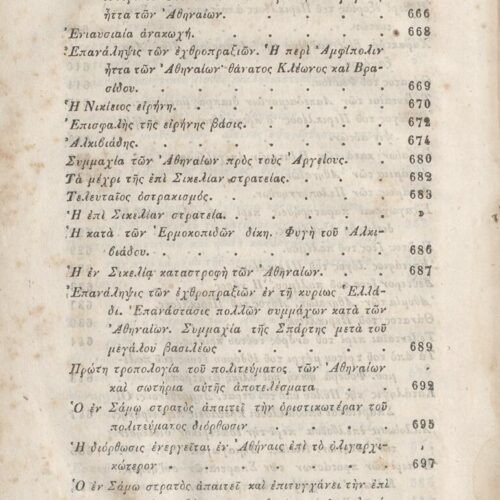 ἧττα τῶν Ἀθηναίων. . . . . . 666
Ἐνιαυσιαία ἀνακωχή. . . . . . 668
Ἐπανάληψις τῶν ἐχθροπραξιῶν. Ἡ περὶ Ἀμφίπολιν
ἧττα τῶν Ἀθηναίων· θάνατος Κλέωνος καὶ Βρα-
σίδου. . . . . . . 669
Ἡ Νικίειος εἰρήνη. . . . . . 670
Ἐπισφαλὴς τῆς εἰρήνης βάσις. . . . . 672
Ἀλκιβιάδης. . . . . . . 674
Συμμαχία τῶν Ἀθηναίων πρὸς τοὺς Ἀργείους. . . 680
Τὰ μέχρι τῆς ἐπὶ Σικελίαν στρατείας. . . . 682
Τελευταῖος ὀστρακισμός. . . . . . 683
Ἡ ἐπὶ Σικελίαν στρατεία. . . . . . »
Ἡ κατὰ τῶν Ἑρμοκοπιδῶν δίκη. Φυγὴ τοῦ Ἀλκι-
βιάδου. . . . . . . 686
Ἡ ἐν Σικελίᾳ καταστροφὴ τῶν Ἀθηναίων. . . 687
Ἐπανάληψις τῶν ἐχθροπραξιῶν ἐν τῇ κυρίως Ἑλλά-
δι. Ἐπανάστασις πολλῶν συμμάχων κατὰ τῶν
Ἀθηναίων. Συμμαχία τῆς Σπάρτης μετὰ τοῦ
μεγάλου βασιλέως . . . . . 689
Πρώτη τροπολογία τοῦ πολιτεύματος τῶν Ἀθηναίων
καὶ σωτήρια αὐτῆς ἀποτελέσματα . . . 692
Ὁ ἐν Σάμῳ στρατὸς ἀπαιτεῖ τὴν ὁριστικωτέραν τοῦ
πολιτεύματος διόρθωσιν . . . . 695
Ἡ διόρθωσις ἐνεργεῖται ἐν Ἀθήναις ἐπὶ τὸ ὀλιγαρχι-
κώτερον . . . . . . 697
Ὁ ἐν Σάμῳ στρατὸς ἀπαιτεῖ καὶ ἐπιτυγχάνει τὴν ἐπὶ